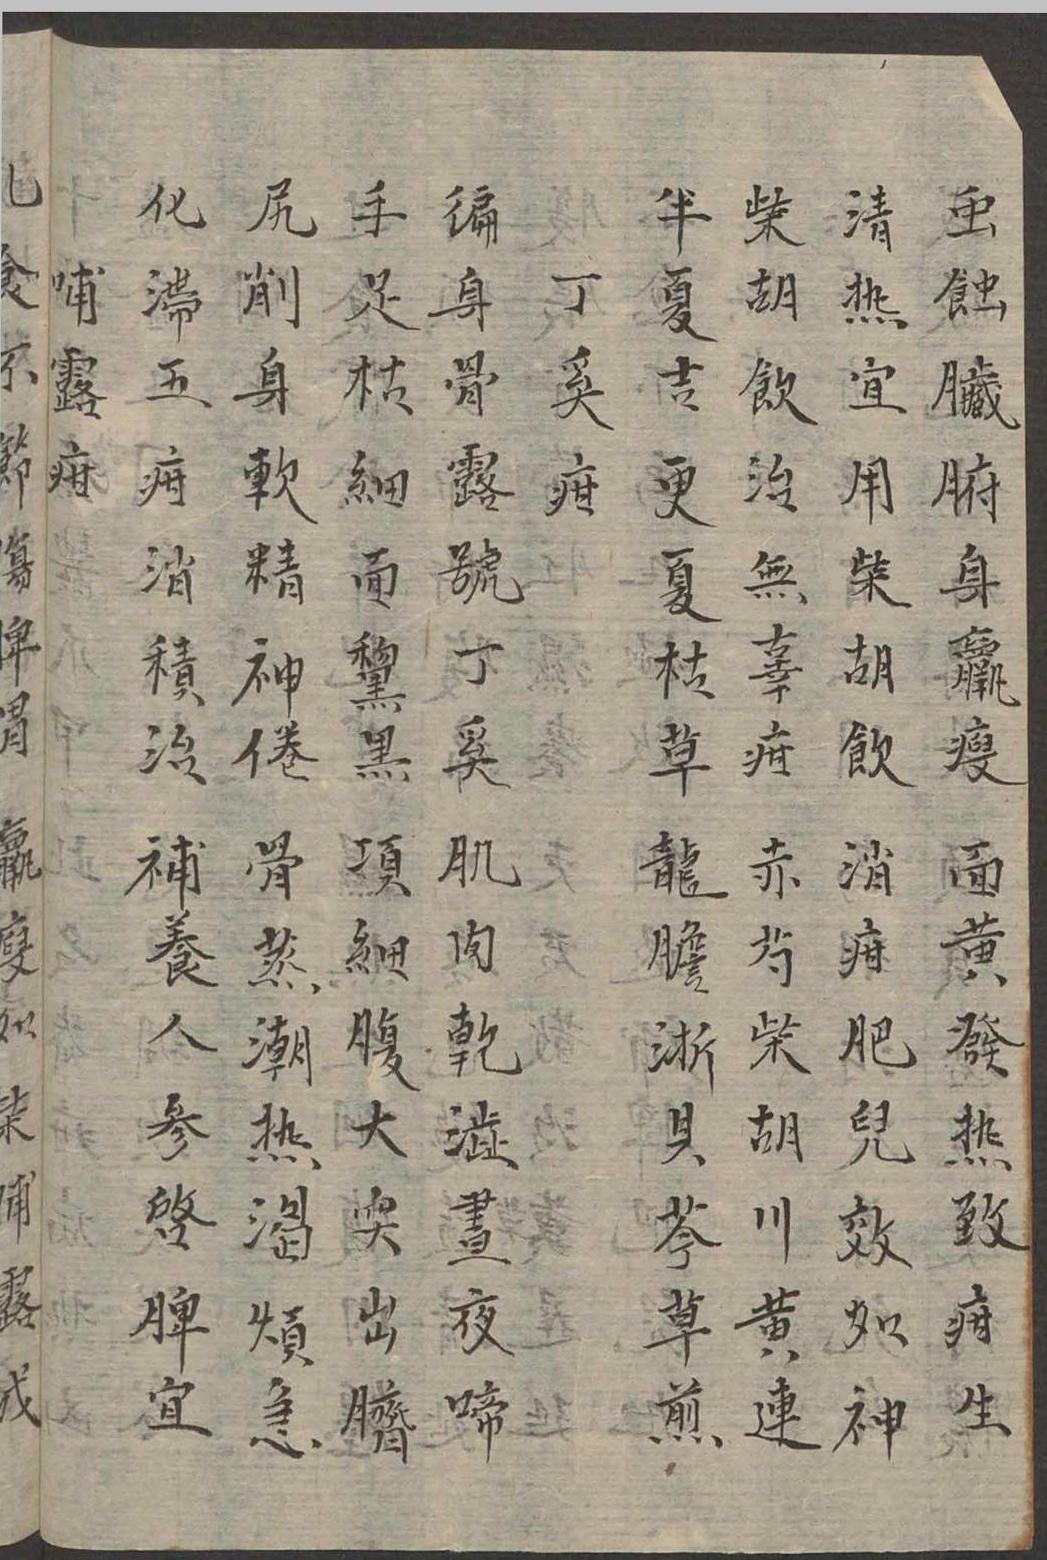 虫蝕臟腑身羸瘦　面黃發热致疳生
清热宜用柴胡飲　消疳肥兒效如神
柴胡飲治無辜疳　赤芍柴胡川黃連
半夏吉更夏枯草　龍膽淅貝苓草煎
丁奚疳
徧身骨露號丁奚　肌肉乾澁晝夜啼
手足枯細面黧黑　項細腹大突出臍
尻削身軟精神倦　骨蒸潮热渴煩急
化滯五疳消積治　補養人參啓脾宜
哺露疳
食不節傷脾胃　羸瘦如柴哺露成